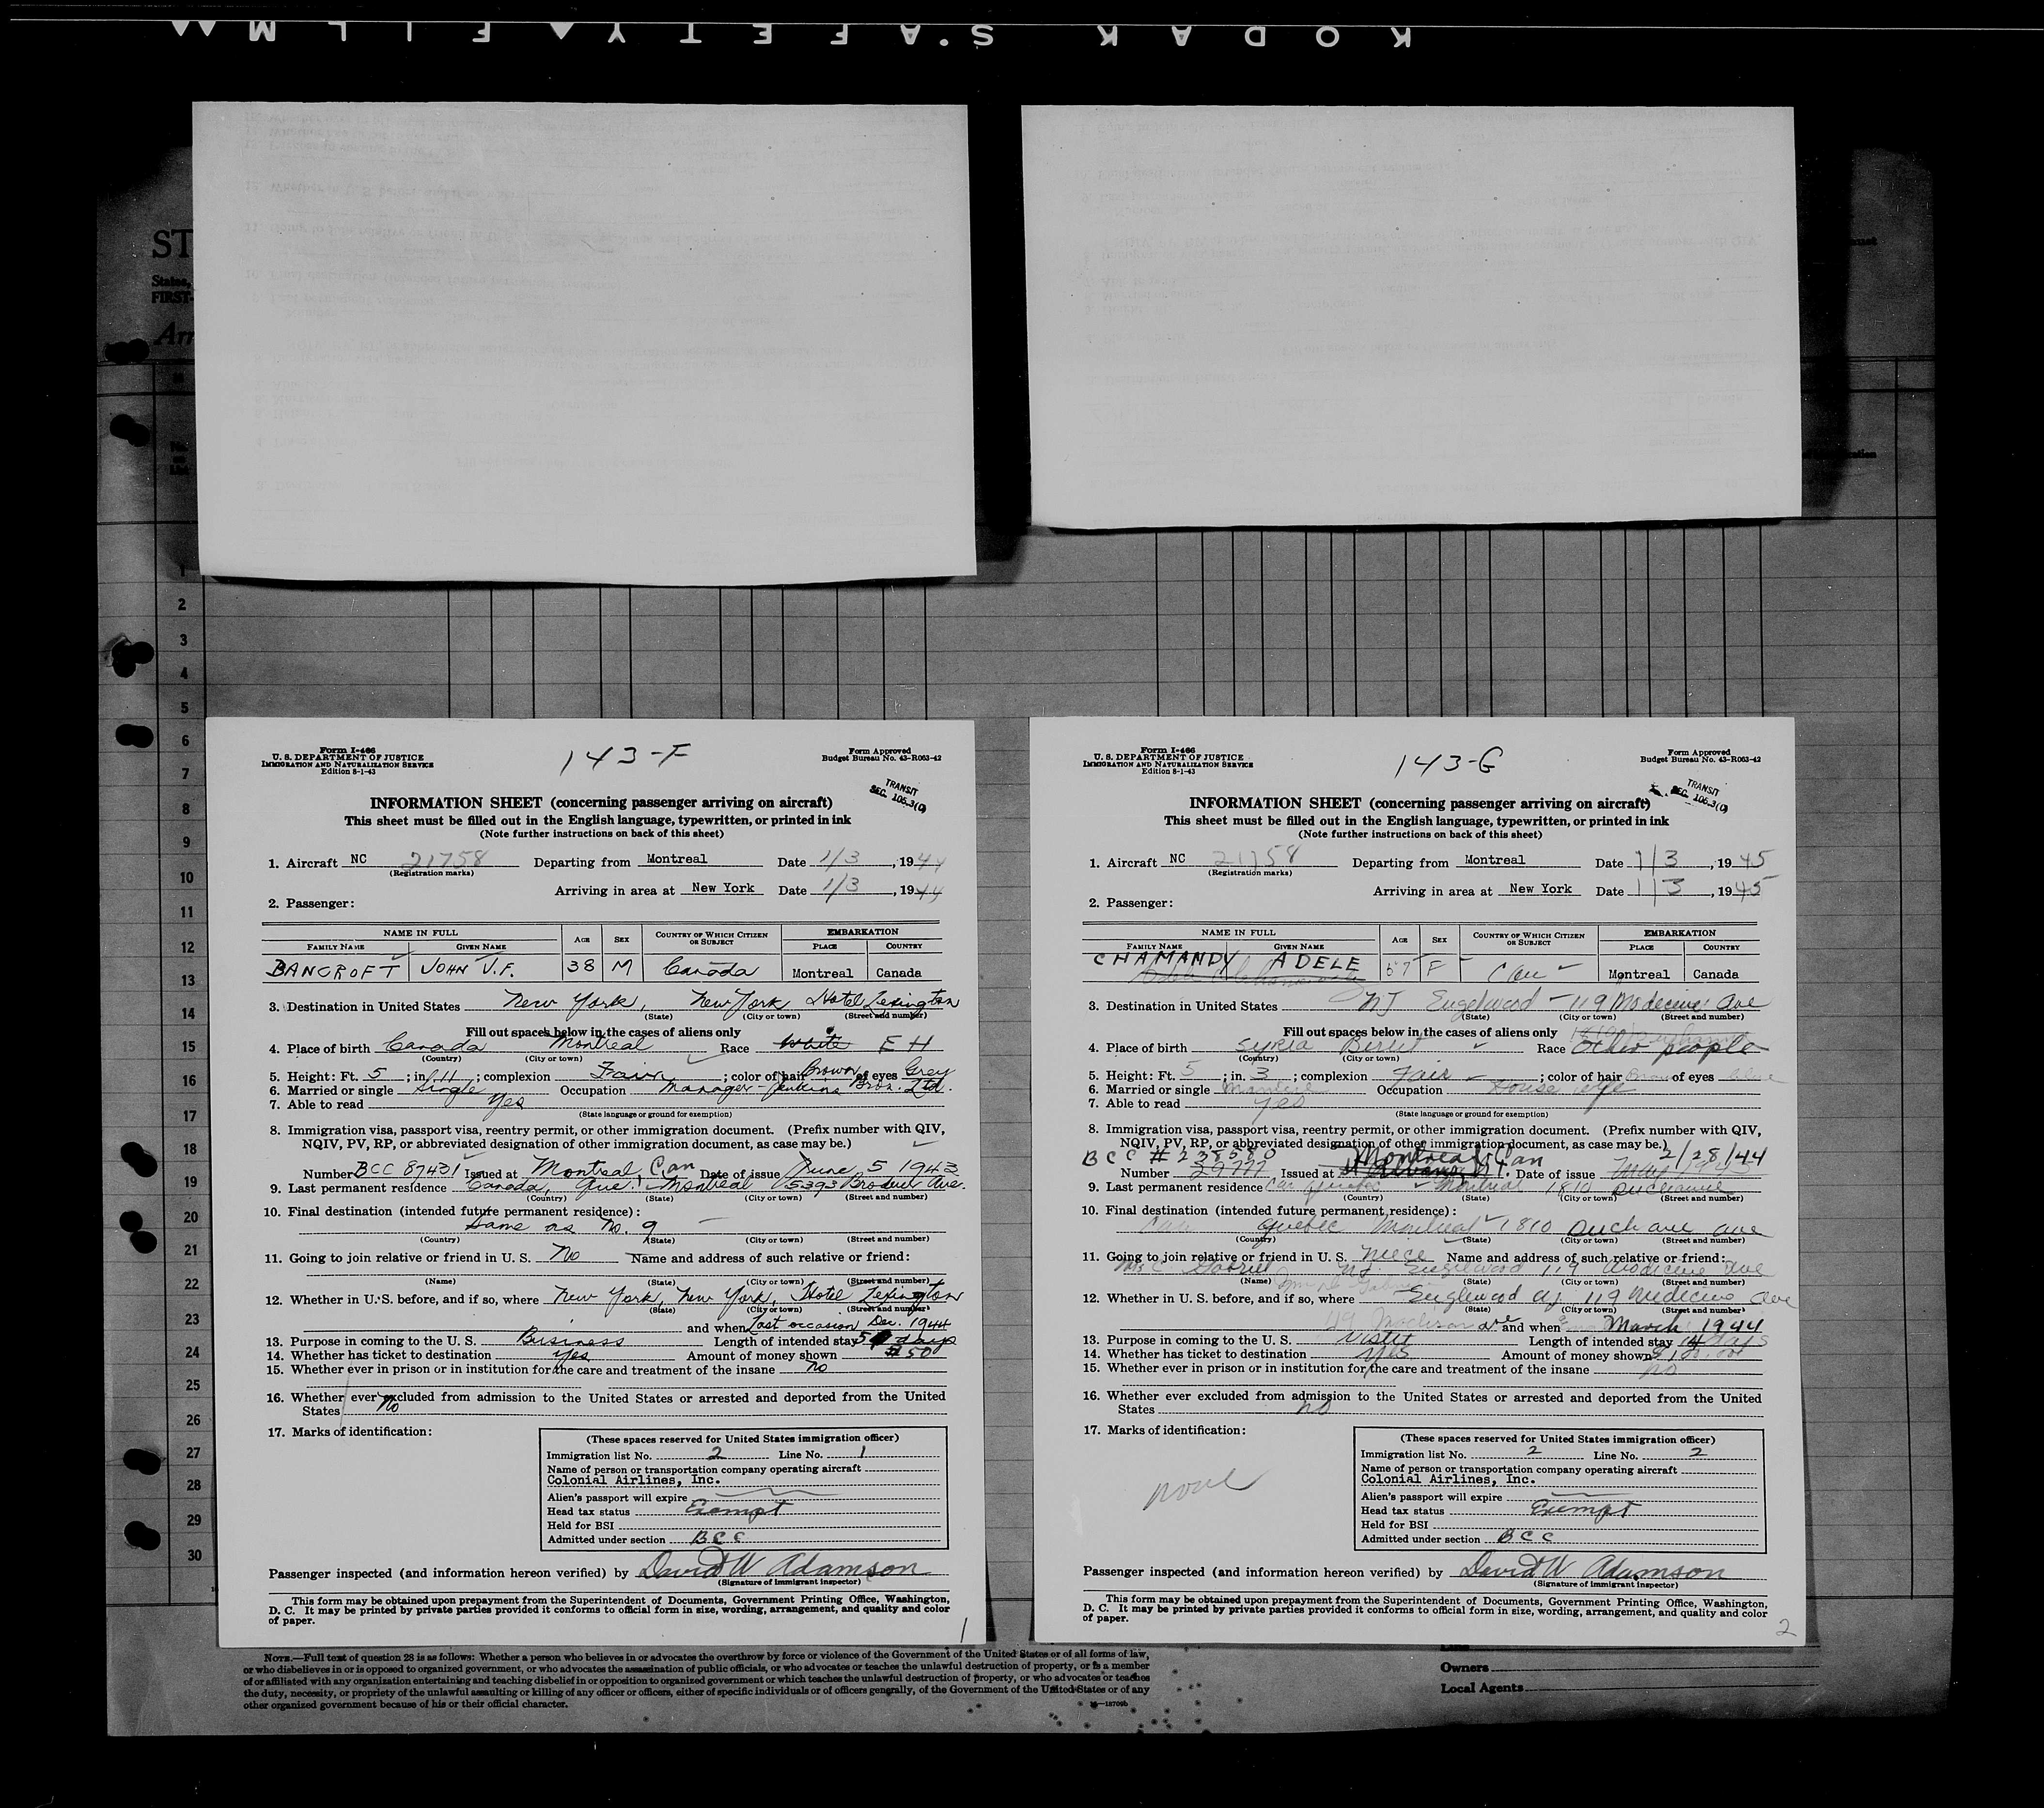 KODAK SAFETY FILM
ST
States,
FIRST-
Arr
1
2
3
4
5
6
7
8
9
10
11
12
13
14
15
16
17
18
19
20
21
22
23
24
25
26
27
28
29
30
Form I-466
U. S. DEPARTMENT OF JUSTICE
IMMIGRATION AND NATURALIZATION SERVICE
Edition 8-1-43
143-F
Form Approved
Budget Bureau No. 43-R063-42
TRANSIT
SEC. 106.3(c)
INFORMATION SHEET (concerning passenger arriving on aircraft)
This sheet must be filled out in the English language, typewritten, or printed in ink
(Note further instructions on back of this sheet)
1. Aircraft NC 21758 Departing from Montreal Date 1/3, 1944
(Registration marks)
Arriving in area at New York Date 1/3, 1944
2. Passenger:
NAME IN FULL AGE SEX COUNTRY OF WHICH CITIZEN OR SUBJECT EMBARKATION
FAMILY NAME GIVEN NAME PLACE COUNTRY
BANCROFT JOHN J.F. 38 M Canada Montreal Canada
3. Destination in United States New York, New York Hotel Lexington
(State) (City or town) (Street and number)
Fill out spaces below in the cases of aliens only
4. Place of birth Canada Montreal Race White E H
(Country) (City or town)
5. Height: Ft. 5; in. 11; complexion Fair; color of hair Brown of eyes Grey
6. Married or single Single Occupation Manager - Jenkins Bros. Ltd.
7. Able to read Yes
(State language or ground for exemption)
8. Immigration visa, passport visa, reentry permit, or other immigration document. (Prefix number with QIV,
NQIV, PV, RP, or abbreviated designation of other immigration document, as case may be.)
Number BCC 87431 Issued at Montreal, Can Date of issue June 5 1943
9. Last permanent residence Canada, Que. Montreal 5393 Brodeur Ave.
(Country) (State) (City or town) (Street and number)
10. Final destination (intended future permanent residence):
Same as No. 9
(Country) (State) (City or town) (Street and number)
11. Going to join relative or friend in U. S. No Name and address of such relative or friend:
(Name) (State) (City or town) (Street and number)
12. Whether in U. S. before, and if so, where New York, New York, Hotel Lexington
(State) (City or town) (Street and number)
and when Last occasion Dec. 1944
13. Purpose in coming to the U. S. Business Length of intended stay 5 days
14. Whether has ticket to destination yes Amount of money shown $50
15. Whether ever in prison or in institution for the care and treatment of the insane no
16. Whether ever excluded from admission to the United States or arrested and deported from the United
States No
17. Marks of identification:
(These spaces reserved for United States immigration officer)
Immigration list No. 2 Line No. 1
Name of person or transportation company operating aircraft
Colonial Airlines, Inc.
Alien's passport will expire
Head tax status Exempt
Held for BSI
Admitted under section BCC
Passenger inspected (and information hereon verified) by David W Adamson
(Signature of immigrant inspector)
This form may be obtained upon prepayment from the Superintendent of Documents, Government Printing Office, Washington,
D. C. It may be printed by private parties provided it conforms to official form in size, wording, arrangement, and quality and color
of paper.
1
Form I-466
U. S. DEPARTMENT OF JUSTICE
IMMIGRATION AND NATURALIZATION SERVICE
Edition 8-1-43
143-G
Form Approved
Budget Bureau No. 43-R063-42
TRANSIT
SEC. 106.3(c)
INFORMATION SHEET (concerning passenger arriving on aircraft)
This sheet must be filled out in the English language, typewritten, or printed in ink
(Note further instructions on back of this sheet)
1. Aircraft NC 21758 Departing from Montreal Date 1/3, 1945
(Registration marks)
Arriving in area at New York Date 1/3, 1945
2. Passenger:
NAME IN FULL AGE SEX COUNTRY OF WHICH CITIZEN OR SUBJECT EMBARKATION
FAMILY NAME GIVEN NAME PLACE COUNTRY
CHAMANDY ADELE 57 F Can Montreal Canada
3. Destination in United States NJ Engelwood - 119 Modecine Ave
(State) (City or town) (Street and number)
Fill out spaces below in the cases of aliens only
4. Place of birth Syria Beruit Race Other people
(Country) (City or town)
5. Height: Ft. 5; in. 3; complexion Fair; color of hair Brown of eyes
6. Married or single Occupation House wife
7. Able to read yes
(State language or ground for exemption)
8. Immigration visa, passport visa, reentry permit, or other immigration document. (Prefix number with QIV,
NQIV, PV, RP, or abbreviated designation of other immigration document, as case may be.)
BCC #238580 Montreal Can 2/28/44
Number 29777 Issued at St Albans Vt. Date of issue
9. Last permanent residence Can Quebec Montreal 1810 Ducharme
(Country) (State) (City or town) (Street and number)
10. Final destination (intended future permanent residence):
Can Quebec Montreal 1810 Ducharme ave
(Country) (State) (City or town) (Street and number)
11. Going to join relative or friend in U. S. Niece Name and address of such relative or friend:
Mrs C. Gabriel NJ. Engelwood 119 Modecine Ave
(Name) (State) (City or town) (Street and number)
12. Whether in U. S. before, and if so, where Englewood NJ 119 Medicine Ave
(State) (City or town) (Street and number)
and when March 1944
13. Purpose in coming to the U. S. Visit Length of intended stay 14 days
14. Whether has ticket to destination yes Amount of money shown $100.00
15. Whether ever in prison or in institution for the care and treatment of the insane no
16. Whether ever excluded from admission to the United States or arrested and deported from the United
States no
17. Marks of identification:
none
(These spaces reserved for United States immigration officer)
Immigration list No. 2 Line No. 2
Name of person or transportation company operating aircraft
Colonial Airlines, Inc.
Alien's passport will expire
Head tax status Exempt
Held for BSI
Admitted under section BCC
Passenger inspected (and information hereon verified) by David W Adamson
(Signature of immigrant inspector)
This form may be obtained upon prepayment from the Superintendent of Documents, Government Printing Office, Washington,
D. C. It may be printed by private parties provided it conforms to official form in size, wording, arrangement, and quality and color
of paper.
2
NOTE.—Full text of question 28 is as follows: Whether a person who believes in or advocates the overthrow by force or violence of the Government of the United States or of all forms of law,
or who disbelieves in or is opposed to organized government, or who advocates the assassination of public officials, or who advocates or teaches the unlawful destruction of property, or is a member
of or affiliated with any organization entertaining and teaching disbelief in or opposition to organized government or which teaches the unlawful destruction of property, or who advocates or teaches
the duty, necessity, or propriety of the unlawful assaulting or killing of any officer or officers, either of specific individuals or of officers generally, of the Government of the United States or of any
other organized government because of his or their official character.
Owners
Local Agents